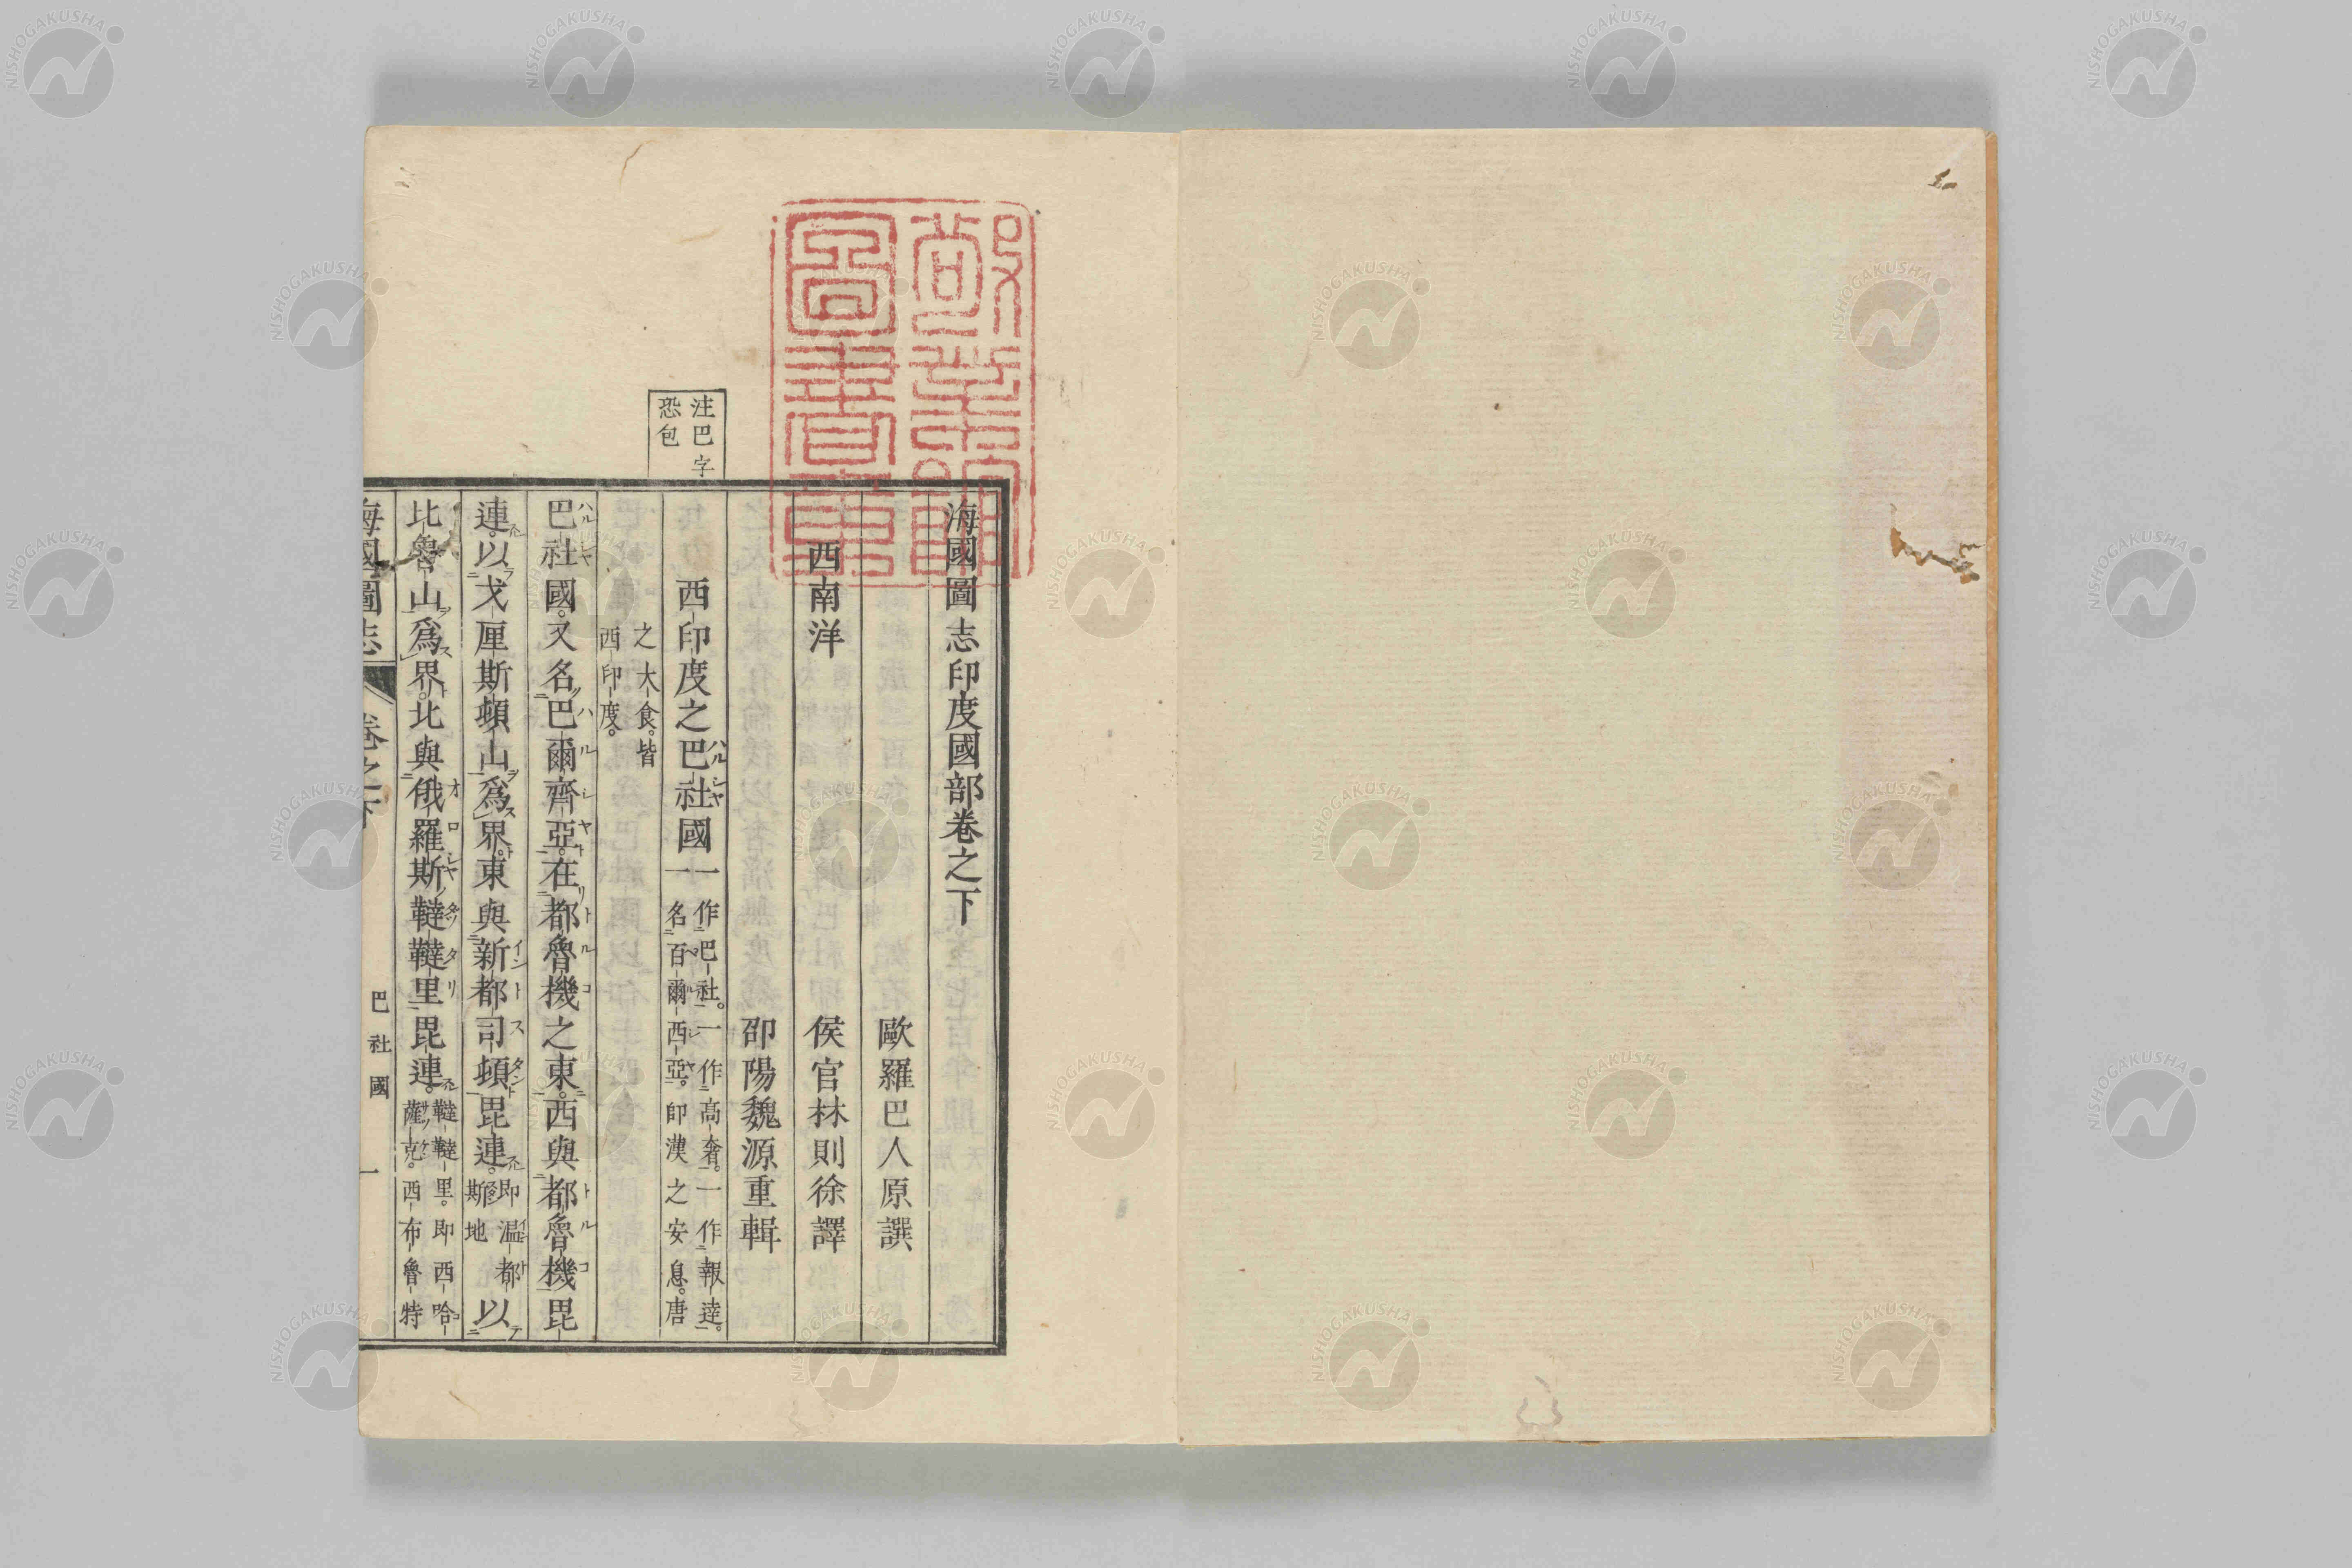 圖書章
注巴字
恐包
海國圖志印度國部卷之下
歐羅巴人原譔
西南洋　侯官林則徐譯
邵陽魏源重輯
西印度之巴社國
一作吧社。一作高奢。一作報達。
一名百爾西亞。即漢之安息。唐
之大食。皆
西印度。
巴社國。又名巴爾齊亞。在都魯機之東。西與都魯機毘
連。以戈厘斯頓山爲界。東與新都司頓毘連。即温都斯地以
比魯山爲界。北與俄羅斯韃韃里毘連。
韃韃里。即西哈
薩克。西布魯特
海國圖志　卷之下　巴社國　一
NISHOGAKUSHA